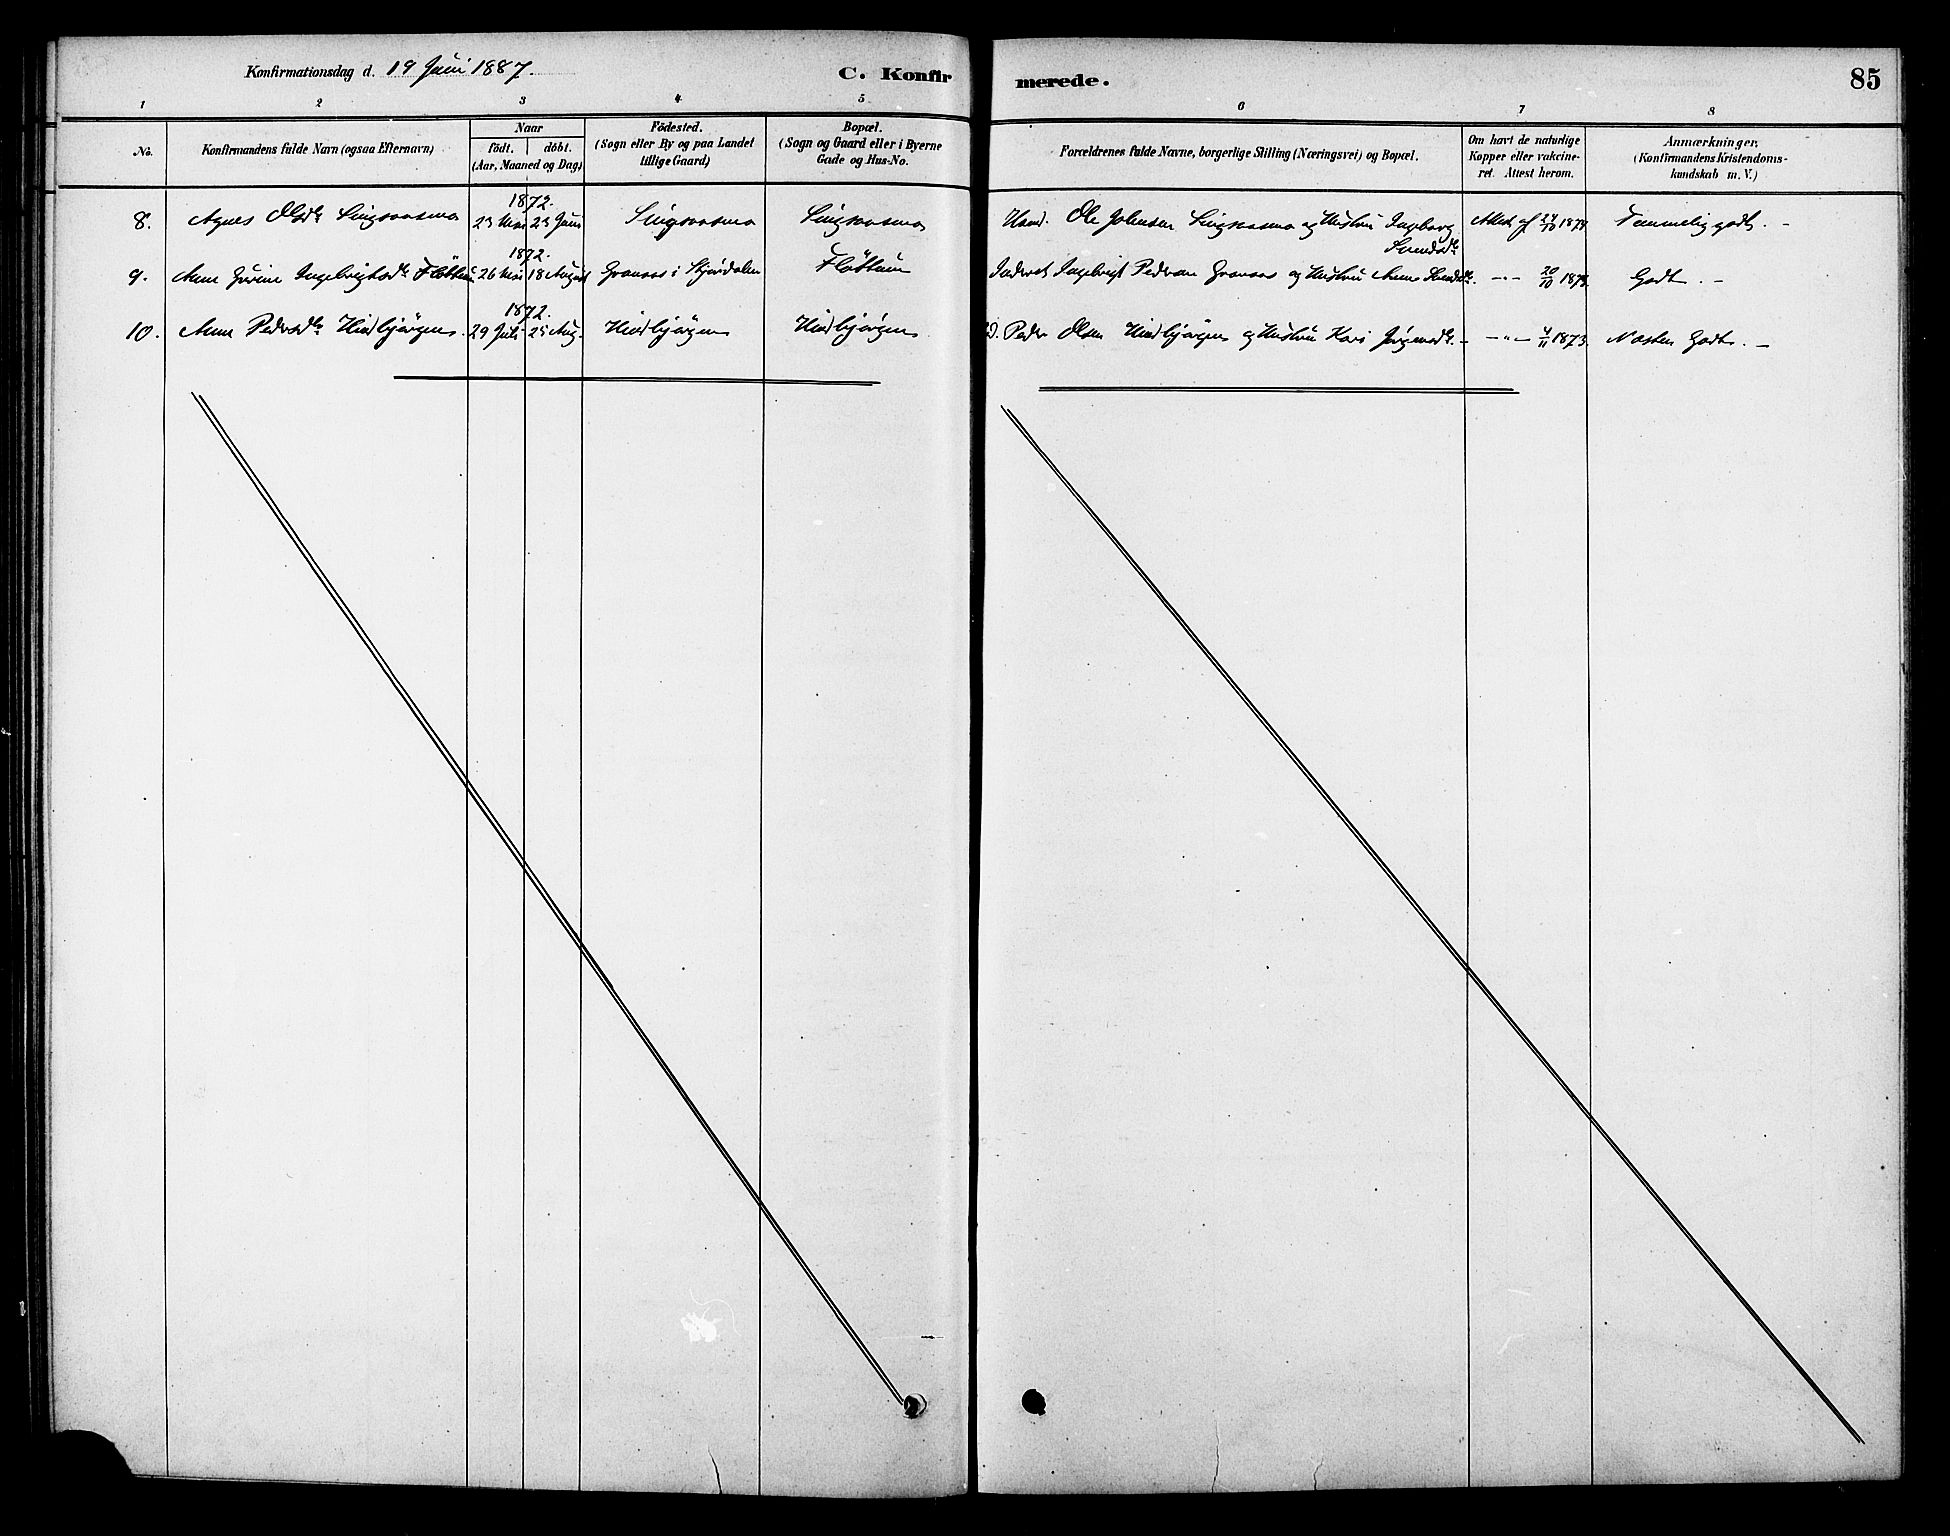 Konfirmationsdag d. 19 Juni 1887.
C. Konfirmerede.
85
1 2 3 4 5 6 7 8
No.
Konfirmandens fulde Navn (ogsaa Efternavn)
Naar
födt. döbt.
(Aar, Maaned og Dag)
Födested.
(Sogn eller By og paa Landet
tillige Gaard)
Bopæl.
(Sogn og Gaard eller i Byerne
Gade og Hus-No.
Forældrenes fulde Navne, borgerlige Stilling (Næringsvei) og Bopæl.
Om havt de naturlige
Kopper eller vakcine-
ret. Attest herom.
Anmærkninger.
(Konfirmandens Kristendoms-
kundskab m. V.)
1872.
8. Agnes Olsdr Singsaasmo 23 Mai 23 Juni Singsaasmo Singsaasmo Ole Johnsen Singsaasmo og Hustru Ingeborg Attest af 1874 Temmelig godt. -
Svendsdr
1872.
9. Anne Ingebrigtsdr Fløttum 26 Mai 18 August Granaas i Stjørdalen Fløttum Inderst Ingebrigt Pedersen Granaas og Hustru Anne -"- 20/10 Godt. -
1872.
10. Anne Pedersdr Hindbjørgen. 29 Juli 25 Aug. Hindbjørgen Hindbjørgen Peder Olsen Hindbjørgen og Hustru Kari Jørgensdr. - -"- 4/11 1873. Næsten Godt. -